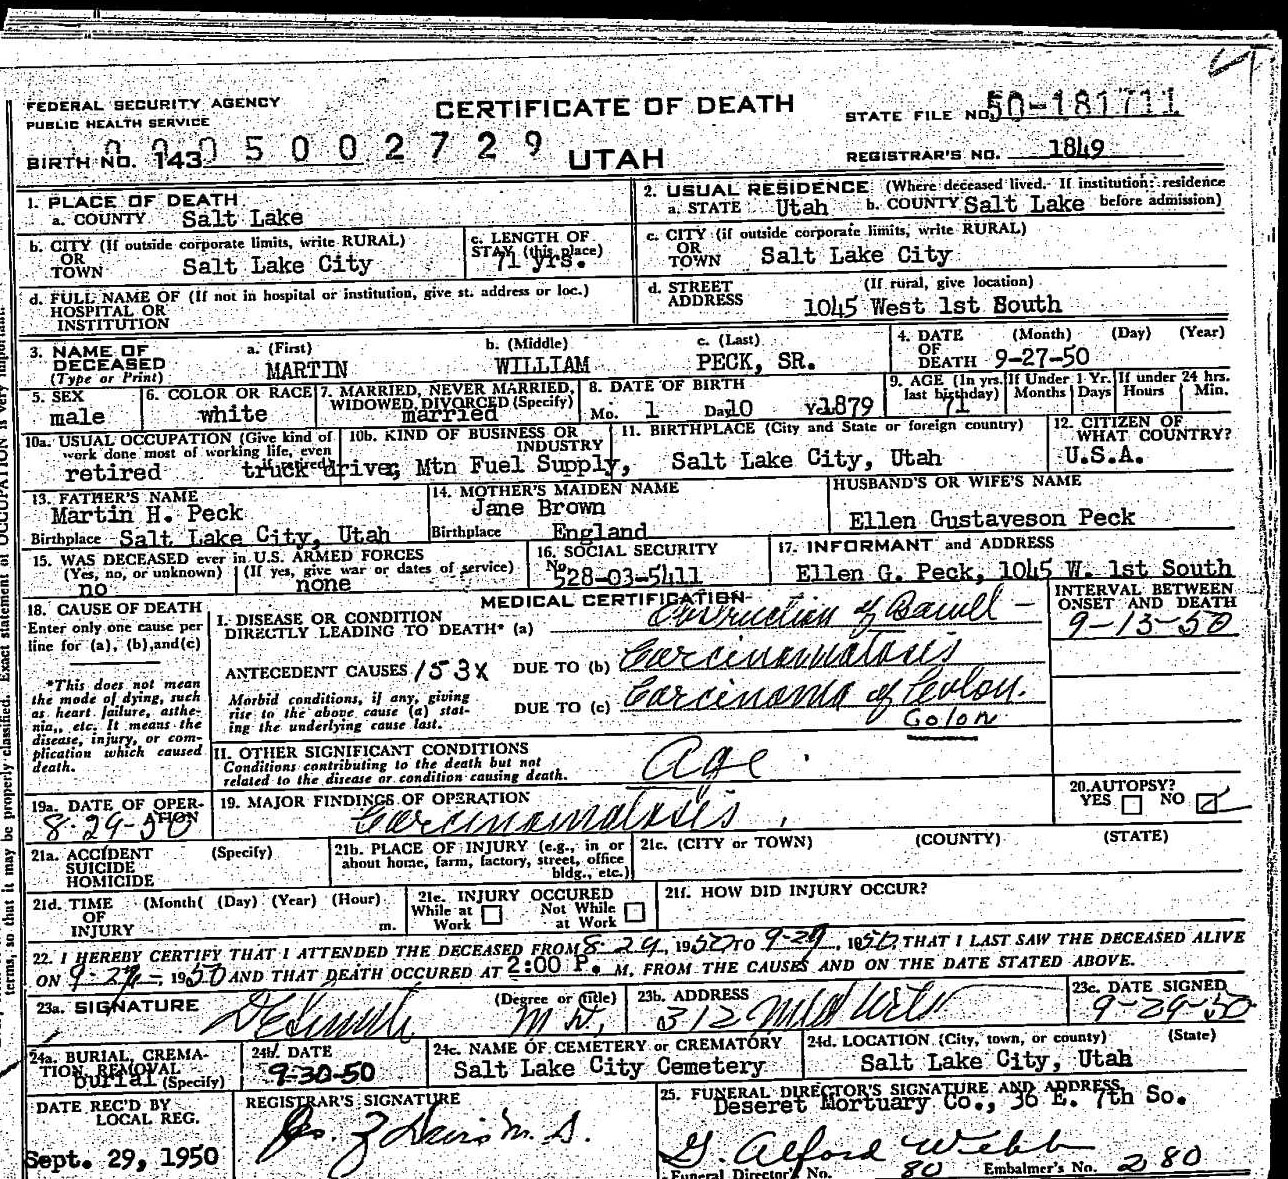 FEDERAL SECURITY AGENCY
PUBLIC HEALTH SERVICE
CERTIFICATE OF DEATH
STATE FILE NO. 50-181711
BIRTH NO. 143
005002729
UTAH
REGISTRAR'S NO. 1849
1. PLACE OF DEATH
a. COUNTY Salt Lake
2. USUAL RESIDENCE (Where deceased lived. If institution: residence before admission)
a. STATE Utah b. COUNTY Salt Lake
b. CITY (If outside corporate limits, write RURAL)
OR
TOWN Salt Lake City
c. LENGTH OF
STAY (this place)
71 yrs.
c. CITY (if outside corporate limits, write RURAL)
OR
TOWN Salt Lake City
d. FULL NAME OF (If not in hospital or institution, give st. address or loc.)
HOSPITAL OR
INSTITUTION
d. STREET (If rural, give location)
ADDRESS 1045 West 1st South
3. NAME OF
DECEASED
(Type or Print)
a. (First) b. (Middle) c. (Last)
MARTIN WILLIAM PECK, SR.
4. DATE (Month) (Day) (Year)
OF
DEATH 9-27-50
5. SEX
male
6. COLOR OR RACE
white
7. MARRIED, NEVER MARRIED,
WIDOWED, DIVORCED (Specify)
married
8. DATE OF BIRTH
Mo. 1 Da 10 Yr 1879
9. AGE (In yrs.
last birthday)
71
If Under 1 Yr.
Months Days
If under 24 hrs.
Hours Min.
10a. USUAL OCCUPATION (Give kind of
work done most of working life, even
if retired)
retired truck driver,
10b. KIND OF BUSINESS OR
INDUSTRY
Mtn Fuel Supply,
11. BIRTHPLACE (City and State or foreign country)
Salt Lake City, Utah
12. CITIZEN OF
WHAT COUNTRY?
U.S.A.
13. FATHER'S NAME
Martin H. Peck
Birthplace Salt Lake City, Utah
14. MOTHER'S MAIDEN NAME
Jane Brown
Birthplace England
HUSBAND'S OR WIFE'S NAME
Ellen Gustaveson Peck
15. WAS DECEASED ever in U.S. ARMED FORCES
(Yes, no, or unknown) (If yes, give war or dates of service)
no none
16. SOCIAL SECURITY
No.
528-03-5411
17. INFORMANT and ADDRESS
Ellen G. Peck, 1045 W. 1st South
18. CAUSE OF DEATH
Enter only one cause per
line for (a), (b), and (c)
*This does not mean
the mode of dying, such
as heart failure, asthe-
nia, etc. It means the
disease, injury, or com-
plication which caused
death.
MEDICAL CERTIFICATION
INTERVAL BETWEEN
ONSET AND DEATH
I. DISEASE OR CONDITION
DIRECTLY LEADING TO DEATH* (a) Obstruction of Bowel - 9-13-50
ANTECEDENT CAUSES 153X DUE TO (b) Carcinomatosis
Morbid conditions, if any, giving
rise to the above cause (a) stat-
ing the underlying cause last.
DUE TO (c) Carcinoma of Colon.
Colon
II. OTHER SIGNIFICANT CONDITIONS
Conditions contributing to the death but not
related to the disease or condition causing death.
Age
19a. DATE OF OPER-
ATION
8-29-50
19. MAJOR FINDINGS OF OPERATION
Carcinomatosis
20. AUTOPSY?
YES NO
21a. ACCIDENT (Specify)
SUICIDE
HOMICIDE
21b. PLACE OF INJURY (e.g., in or
about home, farm, factory, street, office
bldg., etc.)
21c. (CITY or TOWN) (COUNTY) (STATE)
21d. TIME (Month( (Day) (Year) (Hour)
OF
INJURY m.
21e. INJURY OCCURED
While at Work Not While at Work
21f. HOW DID INJURY OCCUR?
22. I HEREBY CERTIFY THAT I ATTENDED THE DECEASED FROM 8-29, 1950 TO 9-27, 1950, THAT I LAST SAW THE DECEASED ALIVE
ON 9-27, 1950 AND THAT DEATH OCCURED AT 2:00 P. M, FROM THE CAUSES AND ON THE DATE STATED ABOVE.
23a. SIGNATURE (Degree or title)
M D.
23b. ADDRESS
312
23c. DATE SIGNED
9-29-50
24a. BURIAL, CREMA-
TION, REMOVAL
burial (Specify)
24b. DATE
9-30-50
24c. NAME OF CEMETERY or CREMATORY
Salt Lake City Cemetery
24d. LOCATION (City, town, or county) (State)
Salt Lake City, Utah
DATE REC'D BY
LOCAL REG.
Sept. 29, 1950
REGISTRAR'S SIGNATURE
25. FUNERAL DIRECTOR'S SIGNATURE AND ADDRESS
Deseret Mortuary Co., 36 E. 7th So.
G. Alford Webb
Funeral Director's No. 80 Embalmer's No. 280
terms, so that it may be properly classified. Exact statement of OCCUPATION is very important.